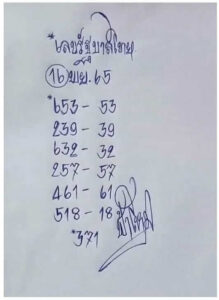 *เลขรัฐบาลไทย
16 พ.ย. 65
*653 - 53
239 - 39
632 - 32
257 - 57
461 - 61
518 - 18
*371